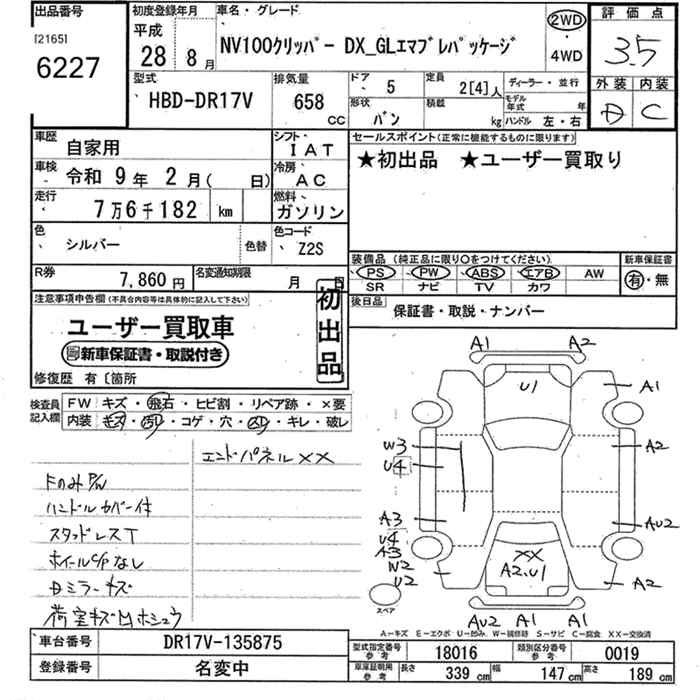 出品番号
[2165]
6227
初度登録年月
平成
28年 8月
車名・グレード
NV100クリッパー DX_GLエマブレパッケージ
2WD
・
4WD
評価点
3.5
外装 内装
D C
型式
HBD-DR17V
排気量
658
cc
ドア 5
形状 バン
定員 2[4]人
積載 kg
ディーラー・並行
モデル年式 年
ハンドル 左・右
車歴 自家用
車検 令和 9年 2月( 日)
走行 7万6千182 km
色 シルバー 色替
シフト IAT
冷房 AC
燃料 ガソリン
色コード Z2S
R券 7,860円
名変通知期限 月 日
セールスポイント(正常に機能するものに限ります)
★初出品 ★ユーザー買取り
装備品 (純正品に限り○をつけてください)
PS PW ABS エアB AW
SR ナビ TV カワ
新車保証書
有・無
後日品 保証書・取説・ナンバー
注意事項申告欄(不具合内容等は具体的に記入して下さい)
ユーザー買取車
新車保証書・取説付き
初出品
修復歴 有〔箇所
検査員記入欄
FW キズ・飛石・ヒビ割・リペア跡・×要
内装 キズ・凹・コゲ・穴・スレ・キレ・破レ
エンドパネルXX
FのみP/W
ハンドルカバー付
スタッドレスT
ホイールC/Pなし
Dミラーキズ
荷室キズMホシュウ
A1 A2
U1
A1
W3
U4
A2
A3
U4
A3
W2
U2
AU2
XX
A2.U1
A2
スペア
AU2 A1 A1
A-キズ E-エクボ U-凹み W-補修跡 S-サビ C-腐食 XX-交換済
車台番号 DR17V-135875
登録番号 名変中
型式指定番号 参考 18016
類別区分番号 参考 0019
車庫証明用 参考 長さ 339 cm 幅 147 cm 高さ 189 cm